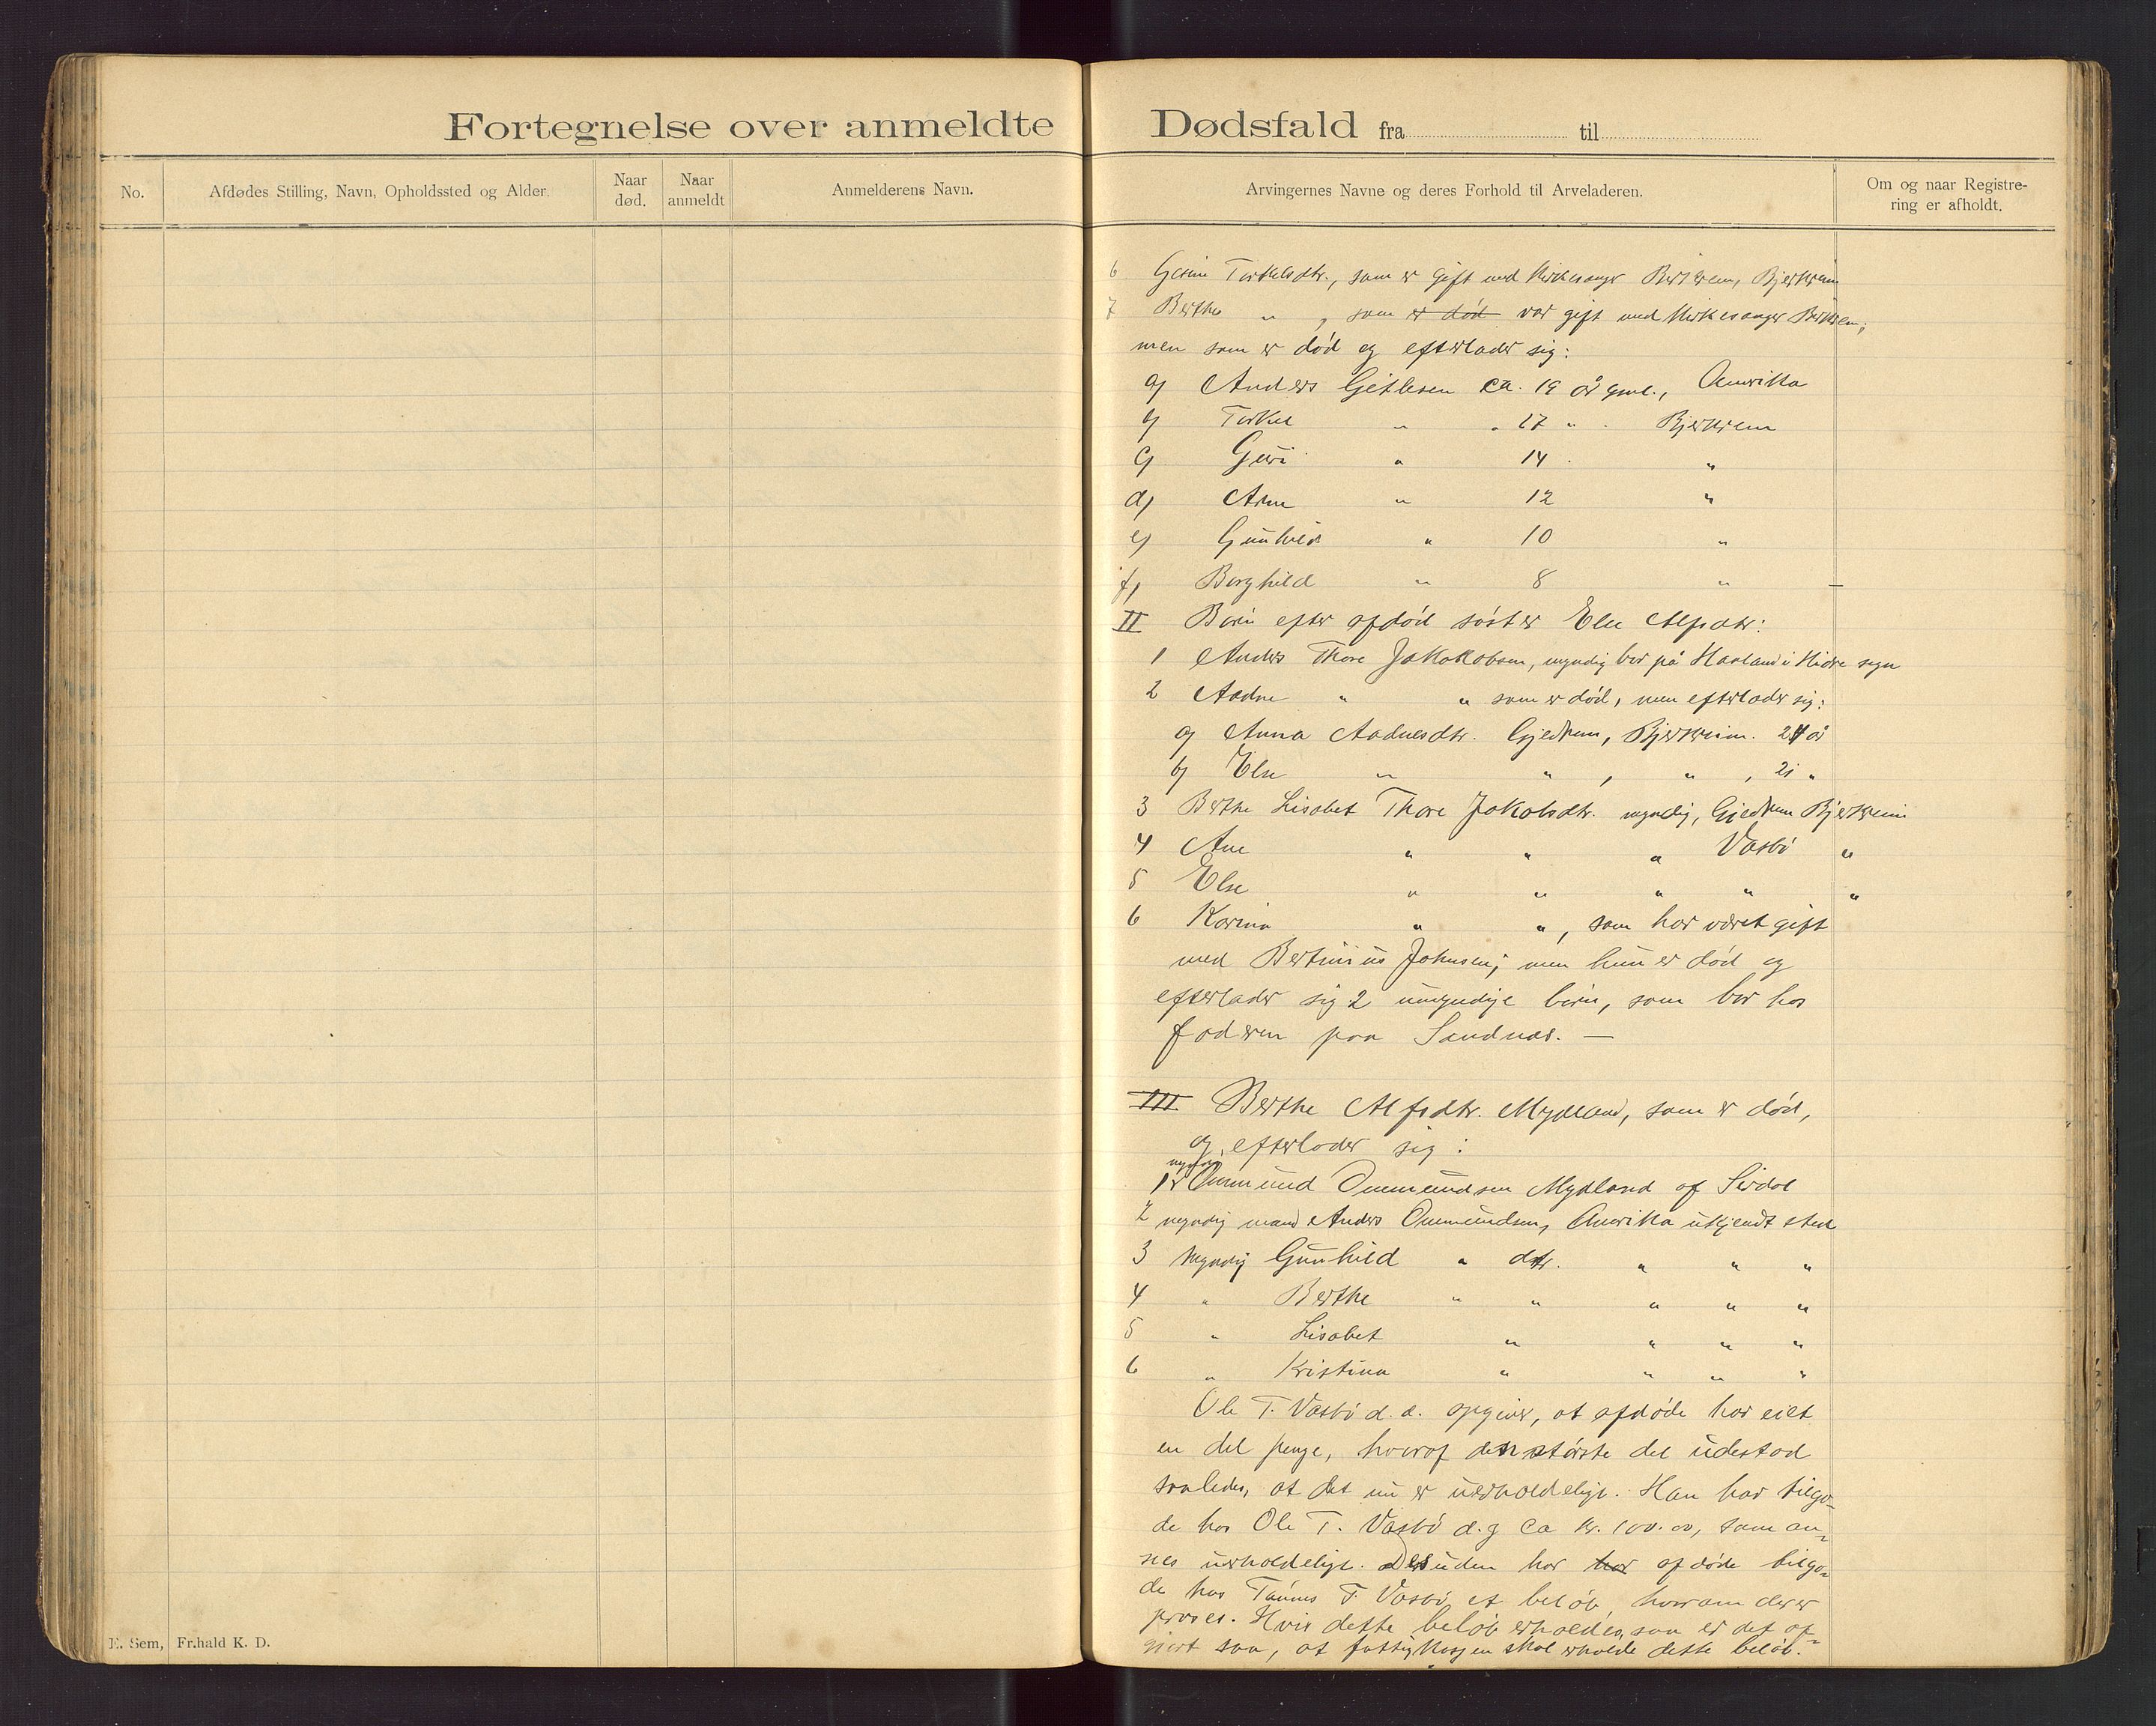 Fortegnelse over anmeldte Dødsfald fra til
No.
Afdødes Stilling, Navn, Opholdssted og Alder.
Naar død.
Naar anmeldt
Anmelderens Navn.
Arvingernes Navne og deres Forhold til Arveladeren.
Om og naar Registre-
ring er afholdt.
6 Gesine Torkelsdtr., som er gift med Kirkesanger Birkrem, Bjerkreim
7 Berthe " , som er død var gift med Kirkesanger Birkrem;
men som er død og efterlader sig:
a) Anders Gitlesen ca. 19 år gml., Amerika
b) Torkel " " 17 " Bjerkreim
c) Guri " 14 "
d) Arne " 12 "
e) Gunhild " 10 "
f) Borghild " 8 " —
II Børn efter afdød søster Else Alfsdtr:
1 Anders Thore Jakobsen, myndig bor på Haaland i Hidre sogn
2 Aadne " " som er død, men efterlader sig:
a) Anna Aadnesdtr. Gjedrem, Bjerkreim. 24 år
b) Else " " , " , 21 "
3 Berthe Lisabet Thore Jakobsdtr. myndig, Gjedrem Bjerkreim
4 Ane " " " Vasbø "
5 Else " " " " "
6 Karina " ", som har været gift
med Bertinius Johnsen; men hun er død og
efterlader sig 2 umyndige børn, som bor hos
faderen paa Sandnæs. —
III Berthe Alfsdtr. Mydland, som er død,
og efterlader sig:
myndig
1 Ommund Ommundsen Mydland af Sirdal
2 myndig mand Anders Ommundsen, Amerika ukjendt sted
3 Myndig Gunhild " dtr. " " "
4 " Berthe " " " " "
5 " Lisabet " " " "
6 " Kristina " " " "
Ole T. Vasbø d. æ. opgiver, at afdøde har eiet
en del penge, hvoraf den største del udestod
saaledes, at det nu er uerholdeligt. Han har tilgo-
de hos Ole T. Vasbø d. y ca kr. 100.00, som an-
sees uerholdeligt. Desuden har har afdøde tilgo-
de hos Tønnes T. Vasbø et beløb, hvorom der er
proces. Hvis dette beløb erholdes, saa er det af-
gjort saa, at fattigkassen skal erholde dette beløb.
E. Sem, Fr.hald K. D.